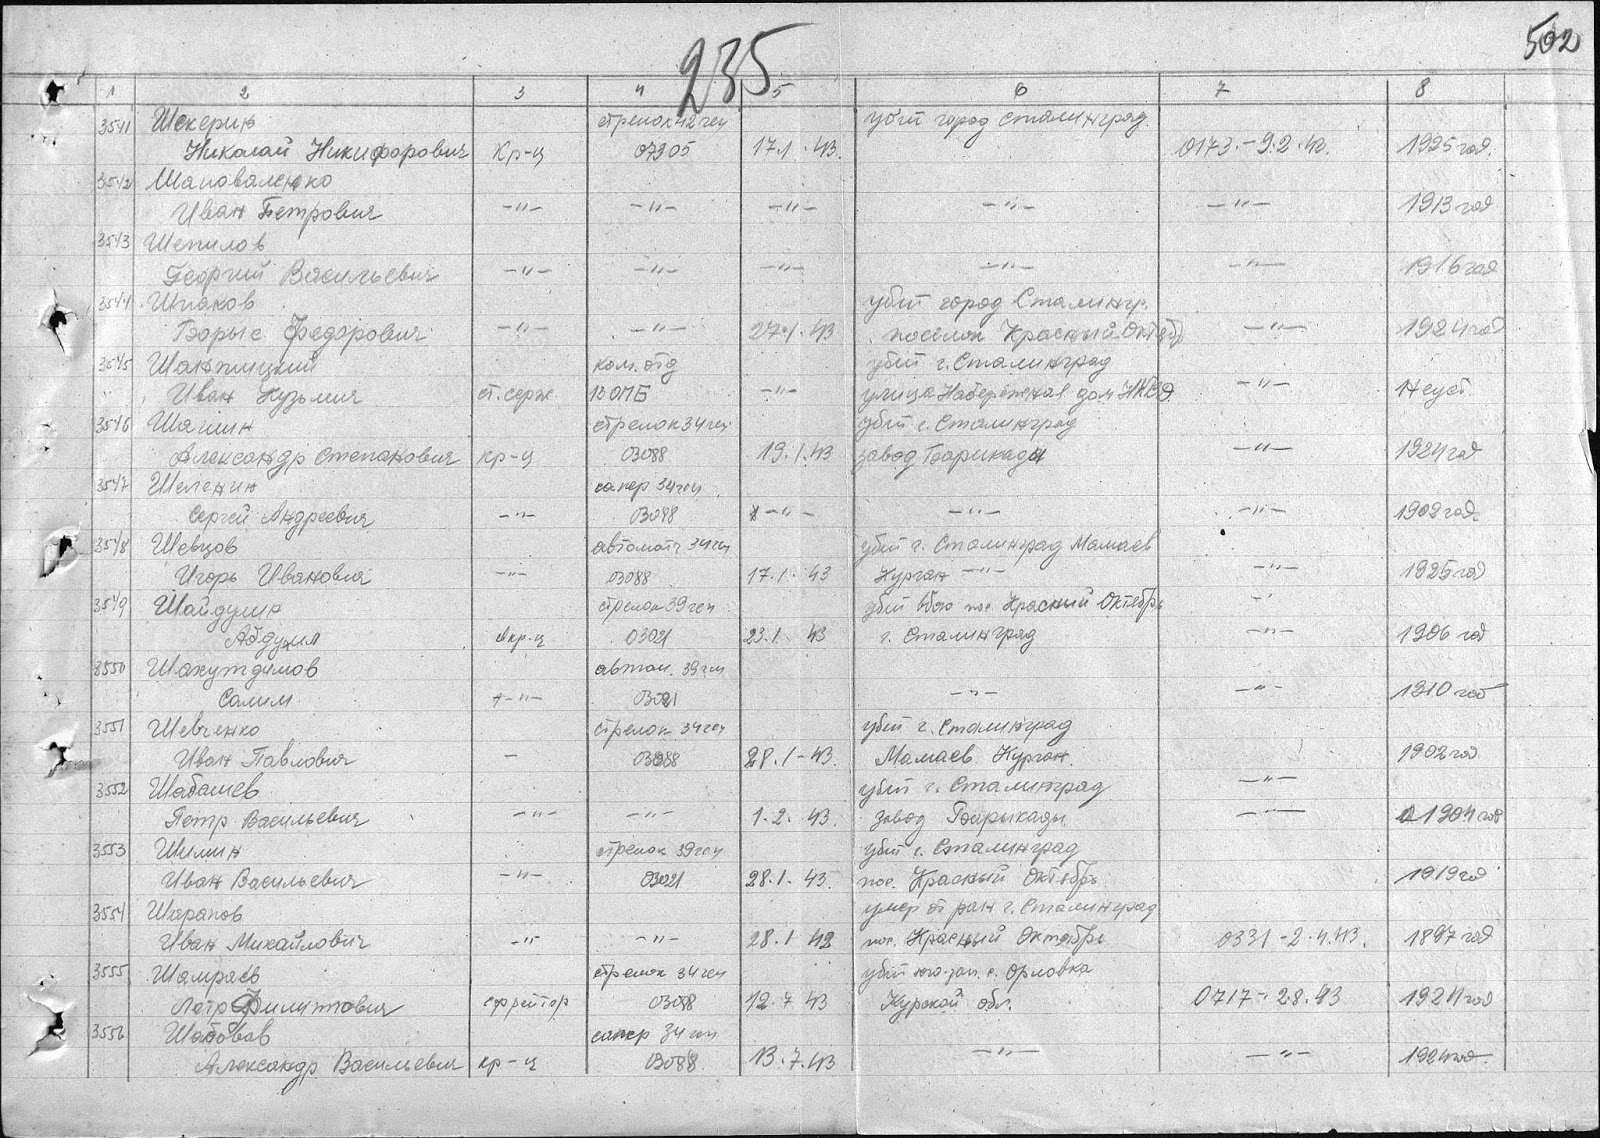 235
502
1 2 3 4 5 6 7 8
3541 Шекерин стрелок 42 геи убит город Сталинград.
Николай Никифорович Кр-ц 07205 17.1.43. 0173.-9.2.43. 1925 год.
3542 Шаповаленко
Иван Петрович -"- -"- -"- -"- -"- 1913 год
3543 Шепилов
Георгий Васильевич -"- -"- -"- -"- -"- 1916 год
3544 Шпаков убит город Сталингр.
Борыс Федорович -"- -"- 27.1.43 поселок Красный Октяб -"- 1924 год
3545 ком. отд убит г. Сталинград
Иван Кузьмич ст. серж -"- улица Набережная дом НКВД -"-
3546 Шашин стрелок 34 геи убит г. Сталинград
Александр Степанович кр-ц 03088 19.1.43 завод Барикады -"- 1924 год
3547 Шеленин сапер 34 геи
Сергей Андреевич -"- 03088 -"- -"- -"- 1902 год
3548 Шевцов автомат 34 геи убит г. Сталинград Мамаев
Игорь Иванович -"- 03088 17.1.43 Курган -"- -"- 1925 год
3549 Шайдулин стрелок 39 геи убит вбою пос Красный Октябрь
Абдулл кр-ц 03021 23.1.43 г. Сталинград -"- 1906 год
3550 автом. 39 геи
Салим -"- 03021 -"- -"- 1910 год
3551 Шевченко стрелок 34 геи убит г. Сталинград
Иван Павлович - 03088 28.1-43. Мамаев Курган. 1902 год
3552 Шабашев убит г. Сталинград -"-
Петр Васильевич -"- -"- 1.2.43. завод Барыкады. 1904 год
3553 Шилин стрелок 39 геи убит г. Сталинград
Иван Васильевич -"- 03021 28.1.43. пос. Красный Октябрь 1919 год
3554 Шарапов умер от ран г. Сталинград
Иван Михайлович -"- -"- 28.1 42 пос. Красный Октябрь 0331-2.4.43. 1897 год
3555 Шамраев стрелок 34 геи убит юго-зап. с. Орловка
Петр Филиппович ефрейтор 03088 12.7.43 Курской обл. 0717-2.8.43 1924 год
3556 сапер 34 геи
Александр Васильевич кр-ц 03088 13.7.43 -"- -"- 1924 год